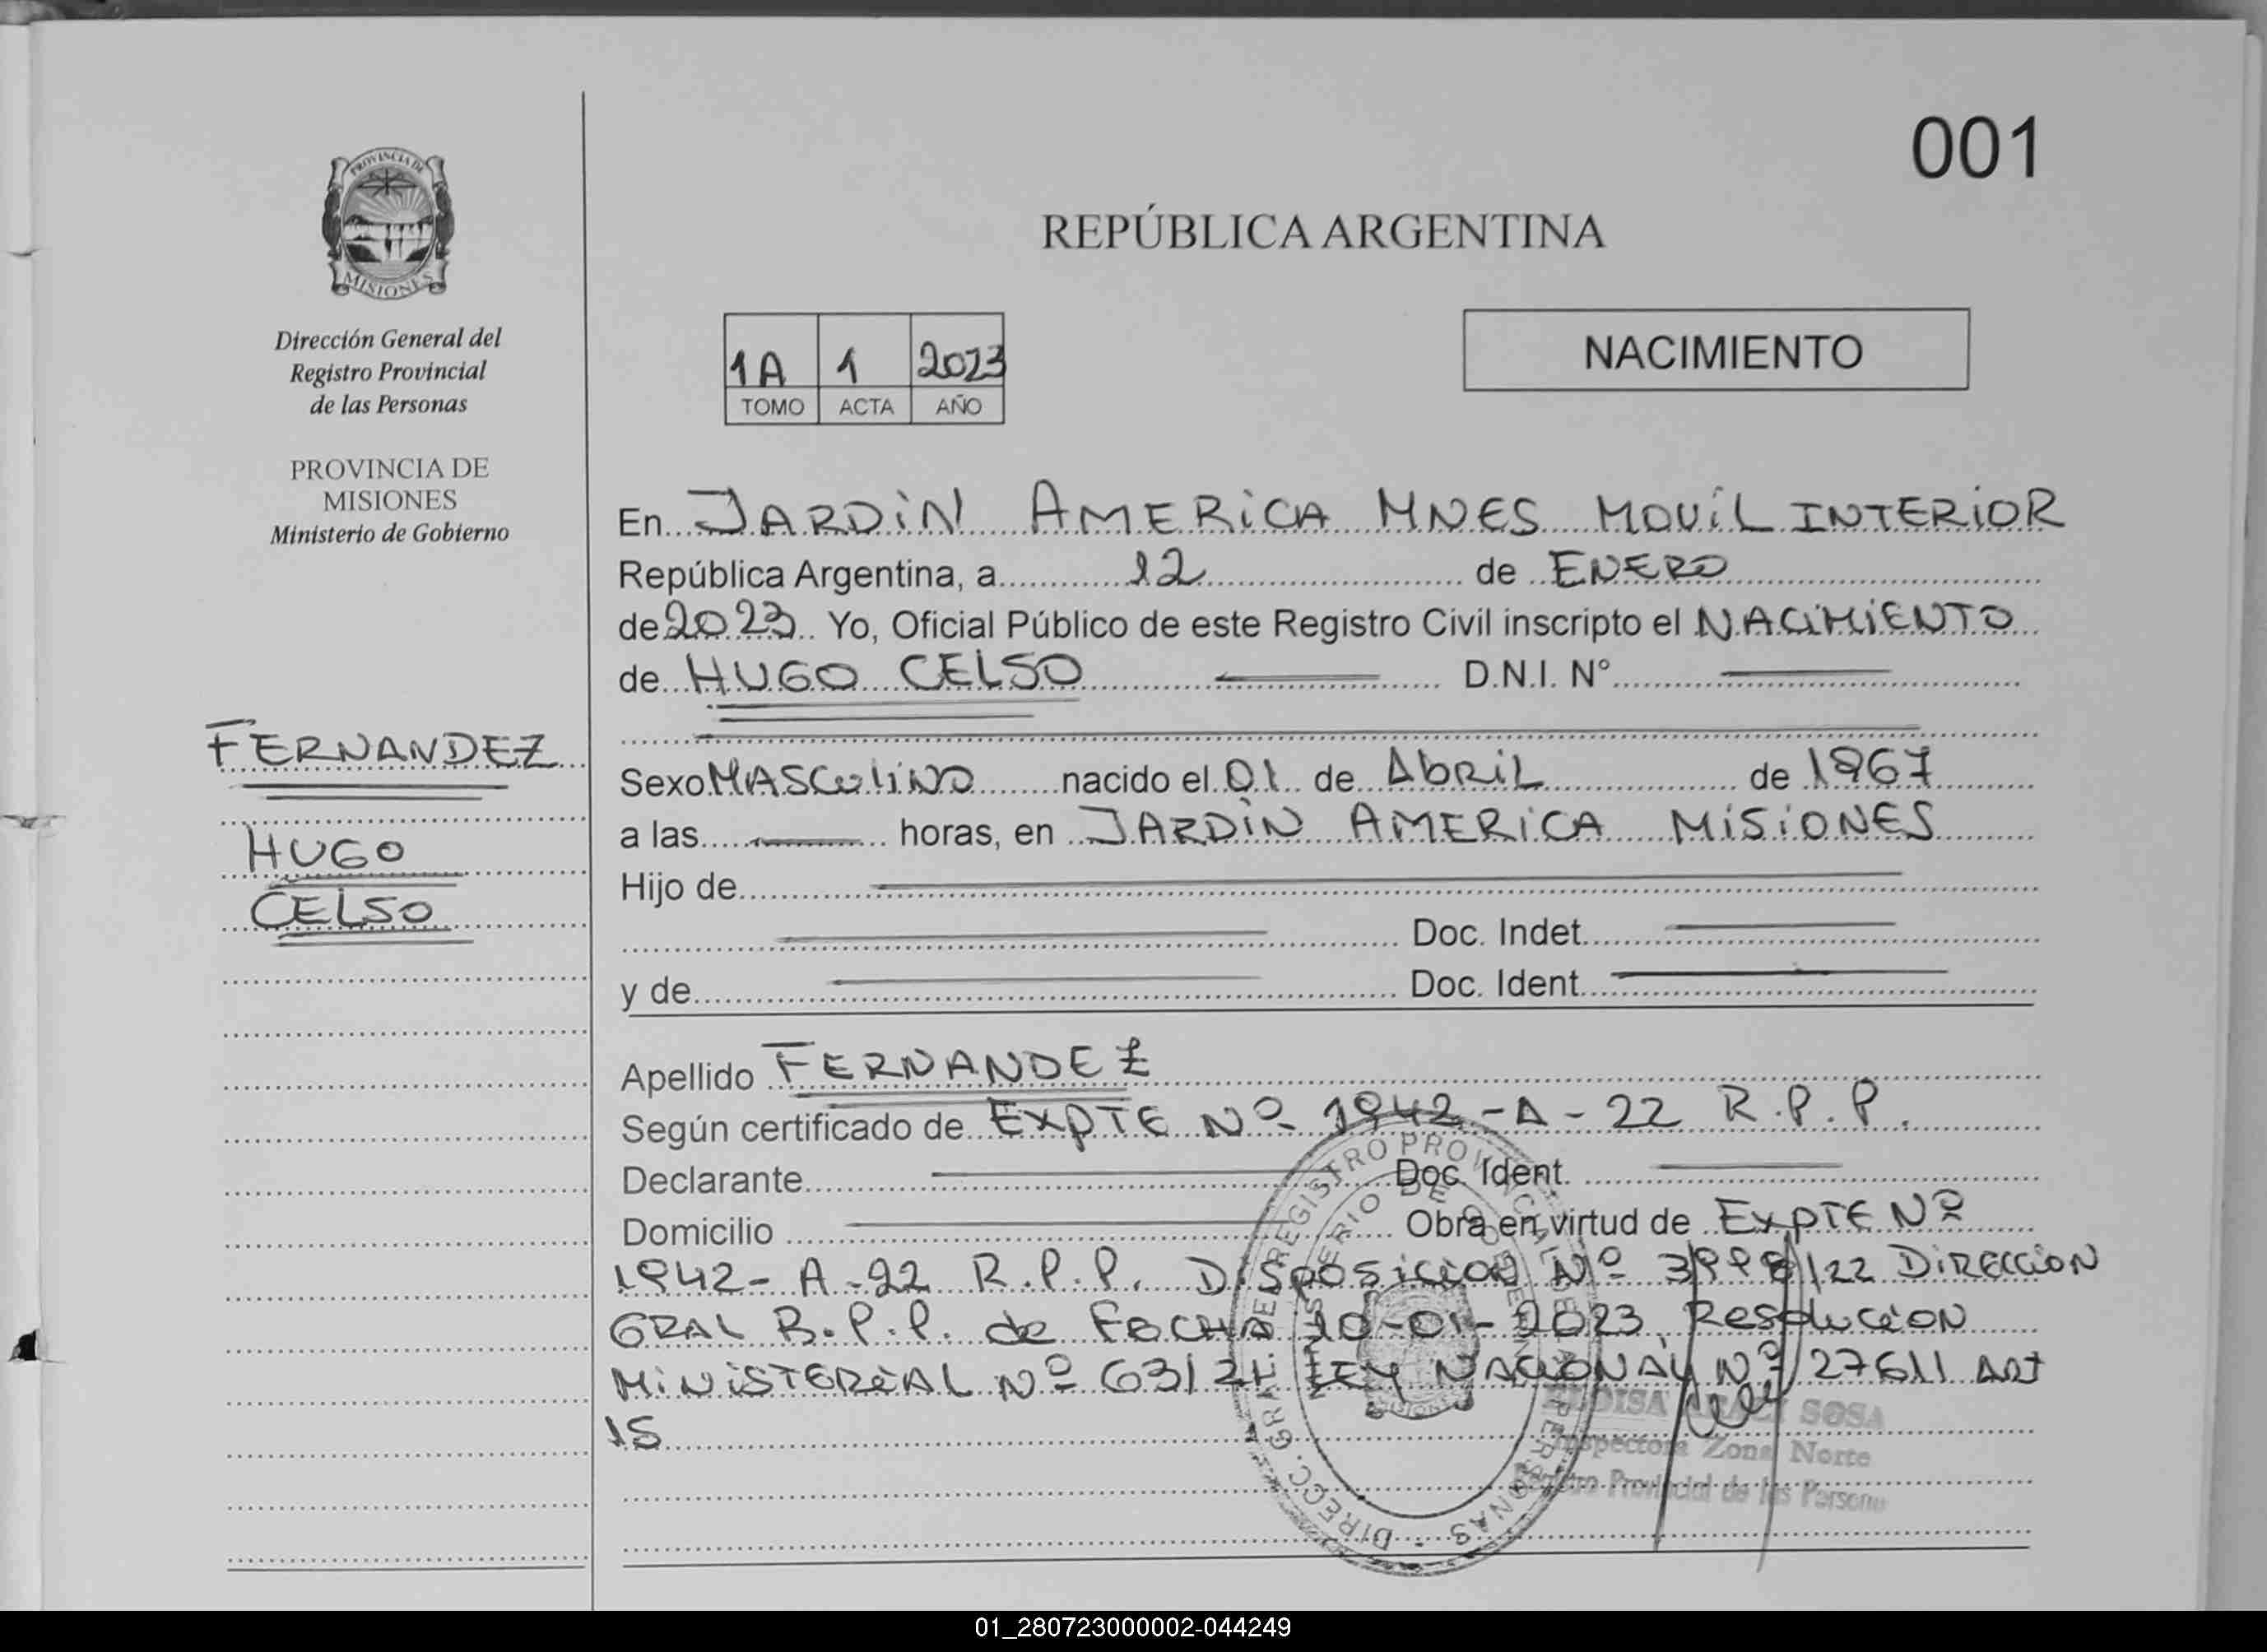 001
PROVINCIA DE
MISIONES
Dirección General del
Registro Provincial
de las Personas
PROVINCIA DE
MISIONES
Ministerio de Gobierno
FERNANDEZ
HUGO
CELSO
REPÚBLICA ARGENTINA
1A 1 2023
TOMO ACTA AÑO
NACIMIENTO
En JARDIN AMERICA MNES MOVIL INTERIOR
República Argentina, a 12 de ENERO
de 2023 Yo, Oficial Público de este Registro Civil inscripto el NACIMIENTO
de HUGO CELSO D.N.I. N°
Sexo MASCULINO nacido el 01 de ABRIL de 1967
a las horas, en JARDIN AMERICA MISIONES
Hijo de
Doc. Indet.
y de Doc. Ident.
Apellido FERNANDEZ
Según certificado de EXPTE Nº 1942-A-22 R.P.P.
Declarante Doc. Ident.
Domicilio Obra en virtud de EXPTE Nº
1942-A-22 R.P.P. DISPOSICION Nº /22 DIRECCION
GRAL R.P.P. de FECHA 10-01-2023, RESOLUCION
MINISTERIAL Nº 63/21 LEY NACIONAL Nº 27611 ART
15
DIRECC. GRAL. DEL REGISTRO PROVINCIAL DE LAS PERSONAS
MINISTERIO DE GOBIERNO
MISIONES
SOSA
Inspectora Zona Norte
Registro Provincial de las Personas
01_280723000002-044249